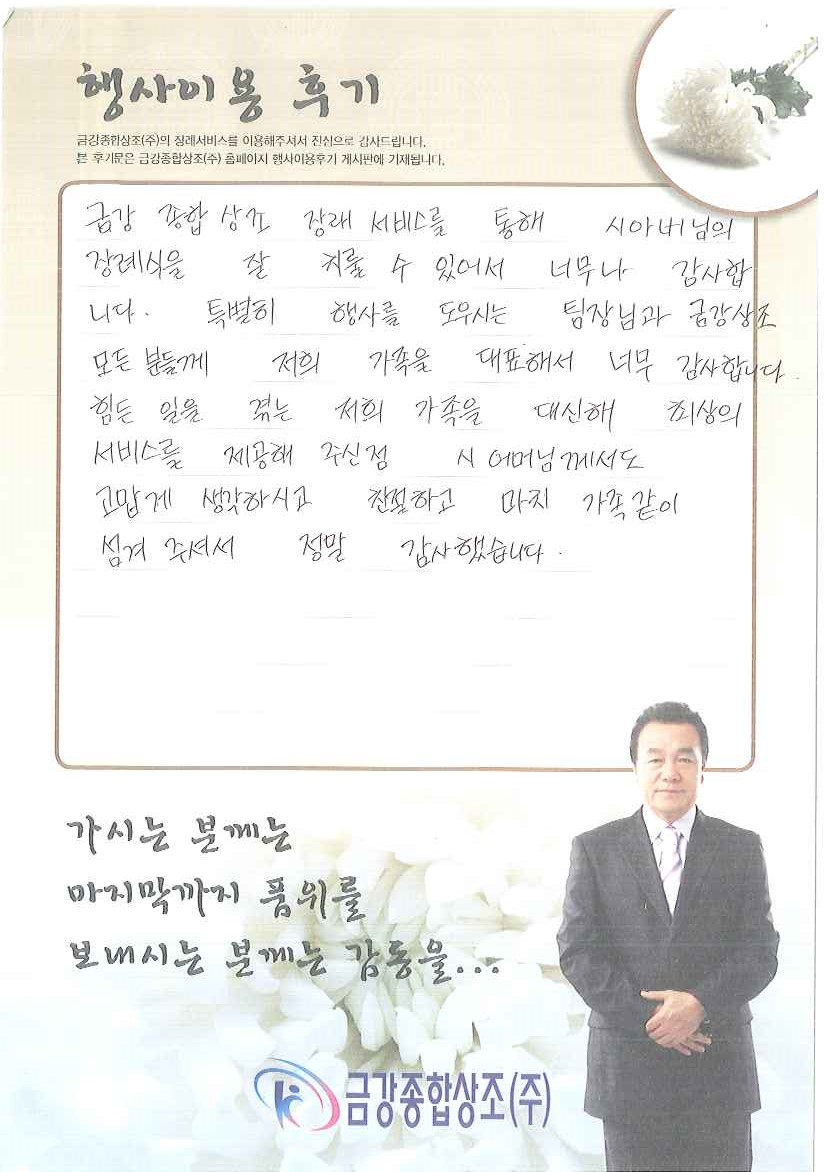 행사이용 후기
금강종합상조(주)의 장례서비스를 이용해주셔서 진심으로 감사드립니다.
본 후기문은 금강종합상조(주) 홈페이지 행사이용후기 게시판에 기재됩니다.
금강 종합 상조 장래 서비스를 통해 시아버님의
장례식을 잘 치룰 수 있어서 너무나 감사합
니다. 특별히 행사를 도우시는 팀장님과 금강상조
모든 분들께 저희 가족을 대표해서 너무 감사합니다.
힘든 일을 겪는 저희 가족을 대신해 최상의
서비스를 제공해 주신점 시어머님께서도
고맙게 생각하시고 친절하고 마치 가족같이
섬겨 주셔서 정말 감사했습니다.
가시는 분께는
마지막까지 품위를
보내시는 분께는 감동을...
금강종합상조(주)